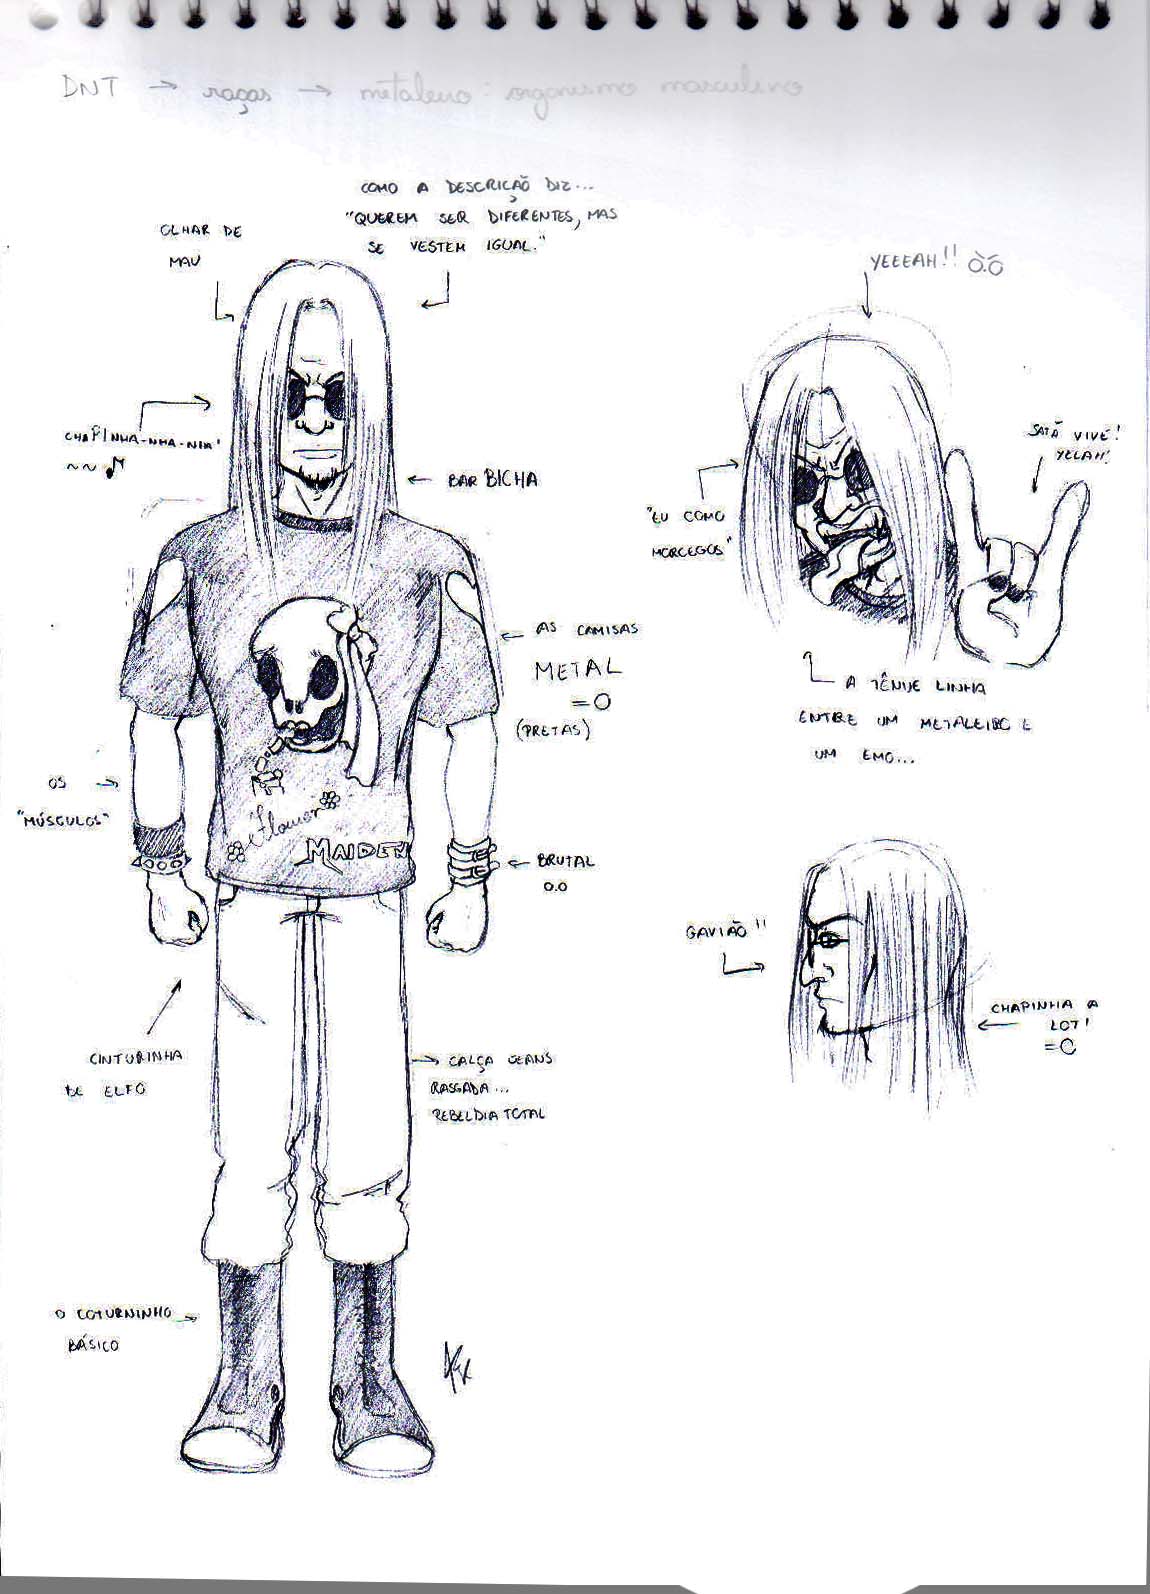 DNT → raças → metaleiro: organismo masculino
COMO A DESCRIÇÃO DIZ...
"QUEREM SER DIFERENTES, MAS
SE VESTEM IGUAL."
OLHAR DE
MAU
CHAPINHA-NHA-NHA!
~~♪
BAR BICHA
AS CAMISAS
METAL
=O
(PRETAS)
OS
"MÚSGULOS"
Flower
MAIDEN
BRUTAL
O.O
CINTURINHA
DE ELFO
CALÇA JEANS
RASGADA...
REBELDIA TOTAL
O COTURNINHO
BÁSICO
YEEEAH!! Ò.Ó
SATÃ VIVE!
YEEAH!
"EU COMO
MORCEGOS"
A TÊNUE LINHA
ENTRE UM METALEIRO E
UM EMO...
GAVIÃO!!
CHAPINHA A
LOT!
=O